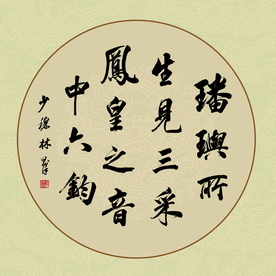 璠璵所
生見三采
鳳皇之音
中六鈞
少穆林